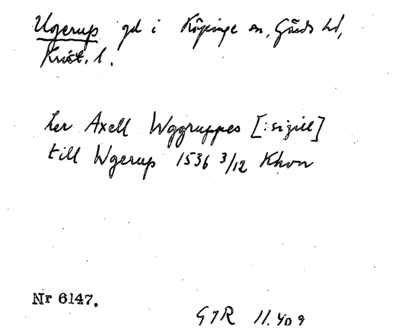 Ugerup gd i Köpinge sn, Gärds hd,
Krist. l.
her Axell Wggruppes [:sigill]
till Wgerup 1536 3/12 Khvn
Nr 6147.
G1R 11.409